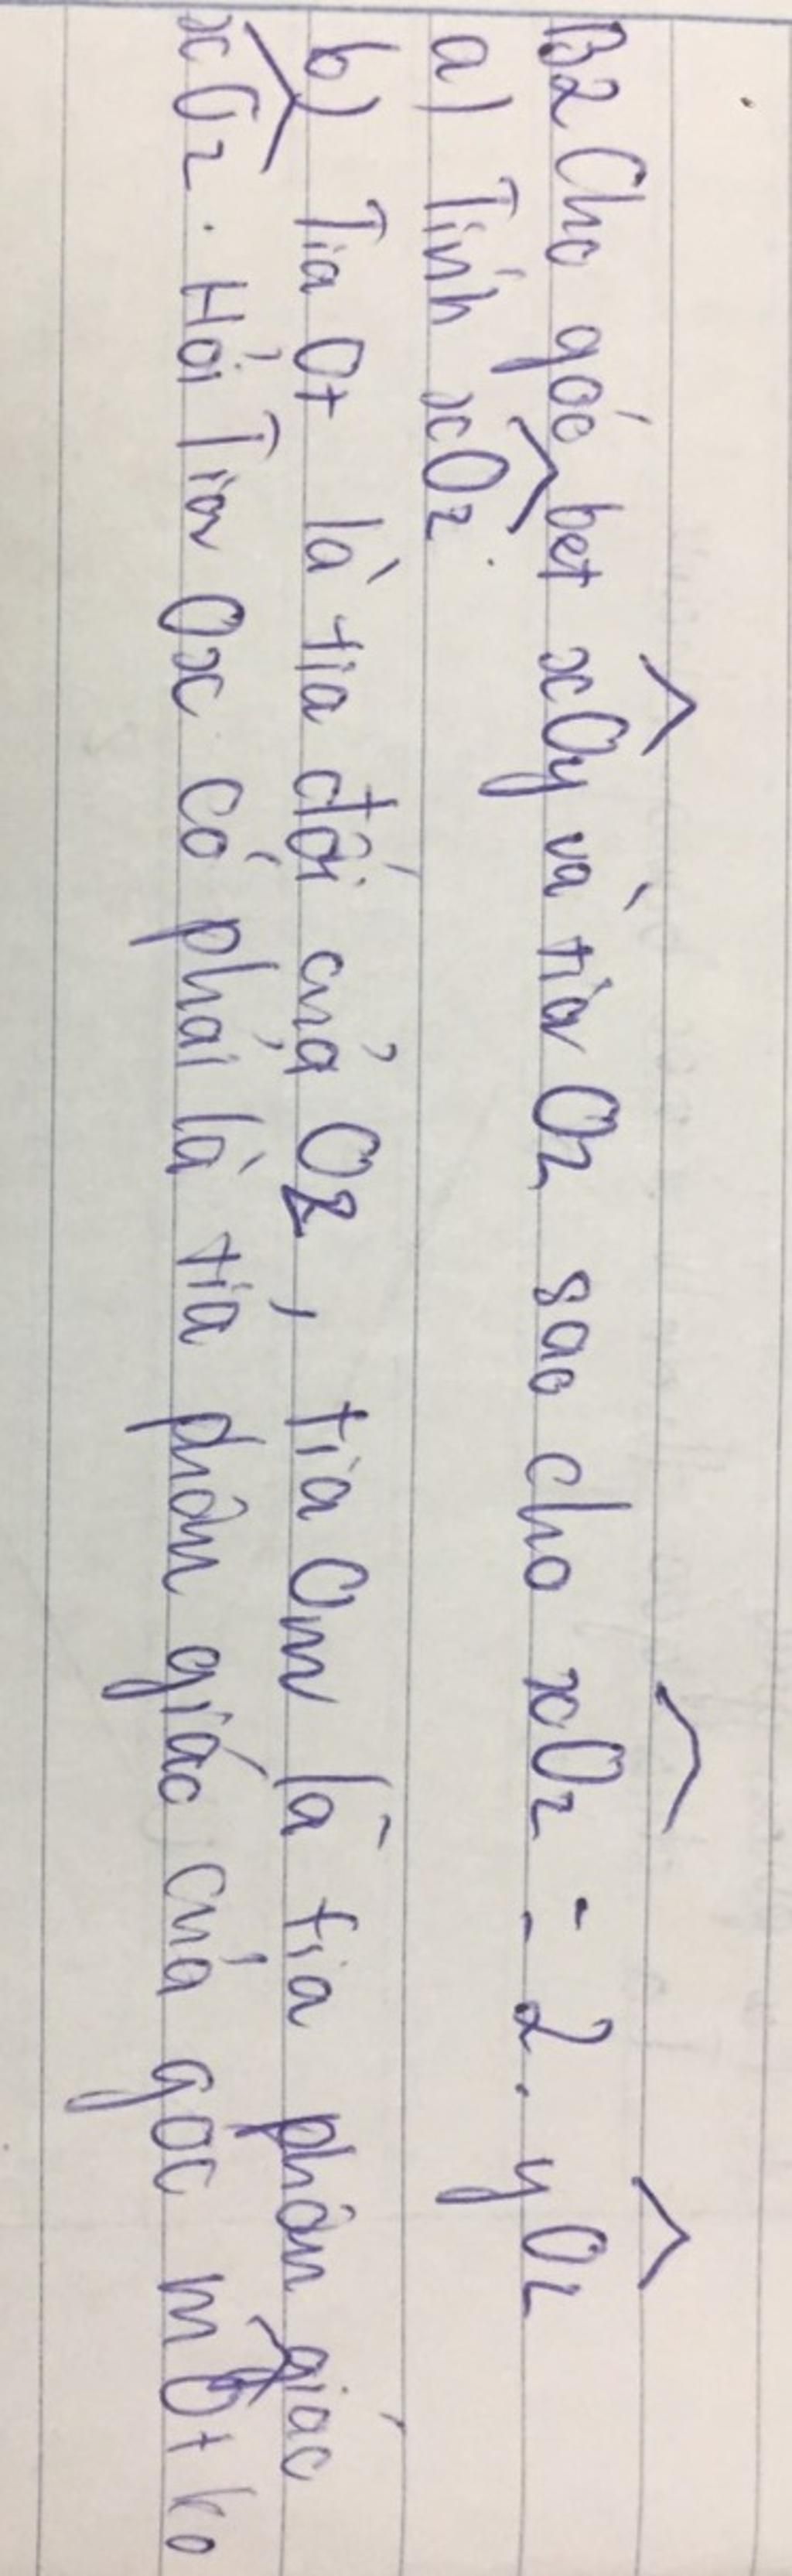 B2 Cho góc bet xOy và tia Oz sao cho xOz = 2. yOz
a) Tính xOz.
b) Tia Ot là tia đối của Oz, tia Om là tia phân giác
xOz. Hỏi Tia Ox có phải là tia phân giác của góc mOt ko